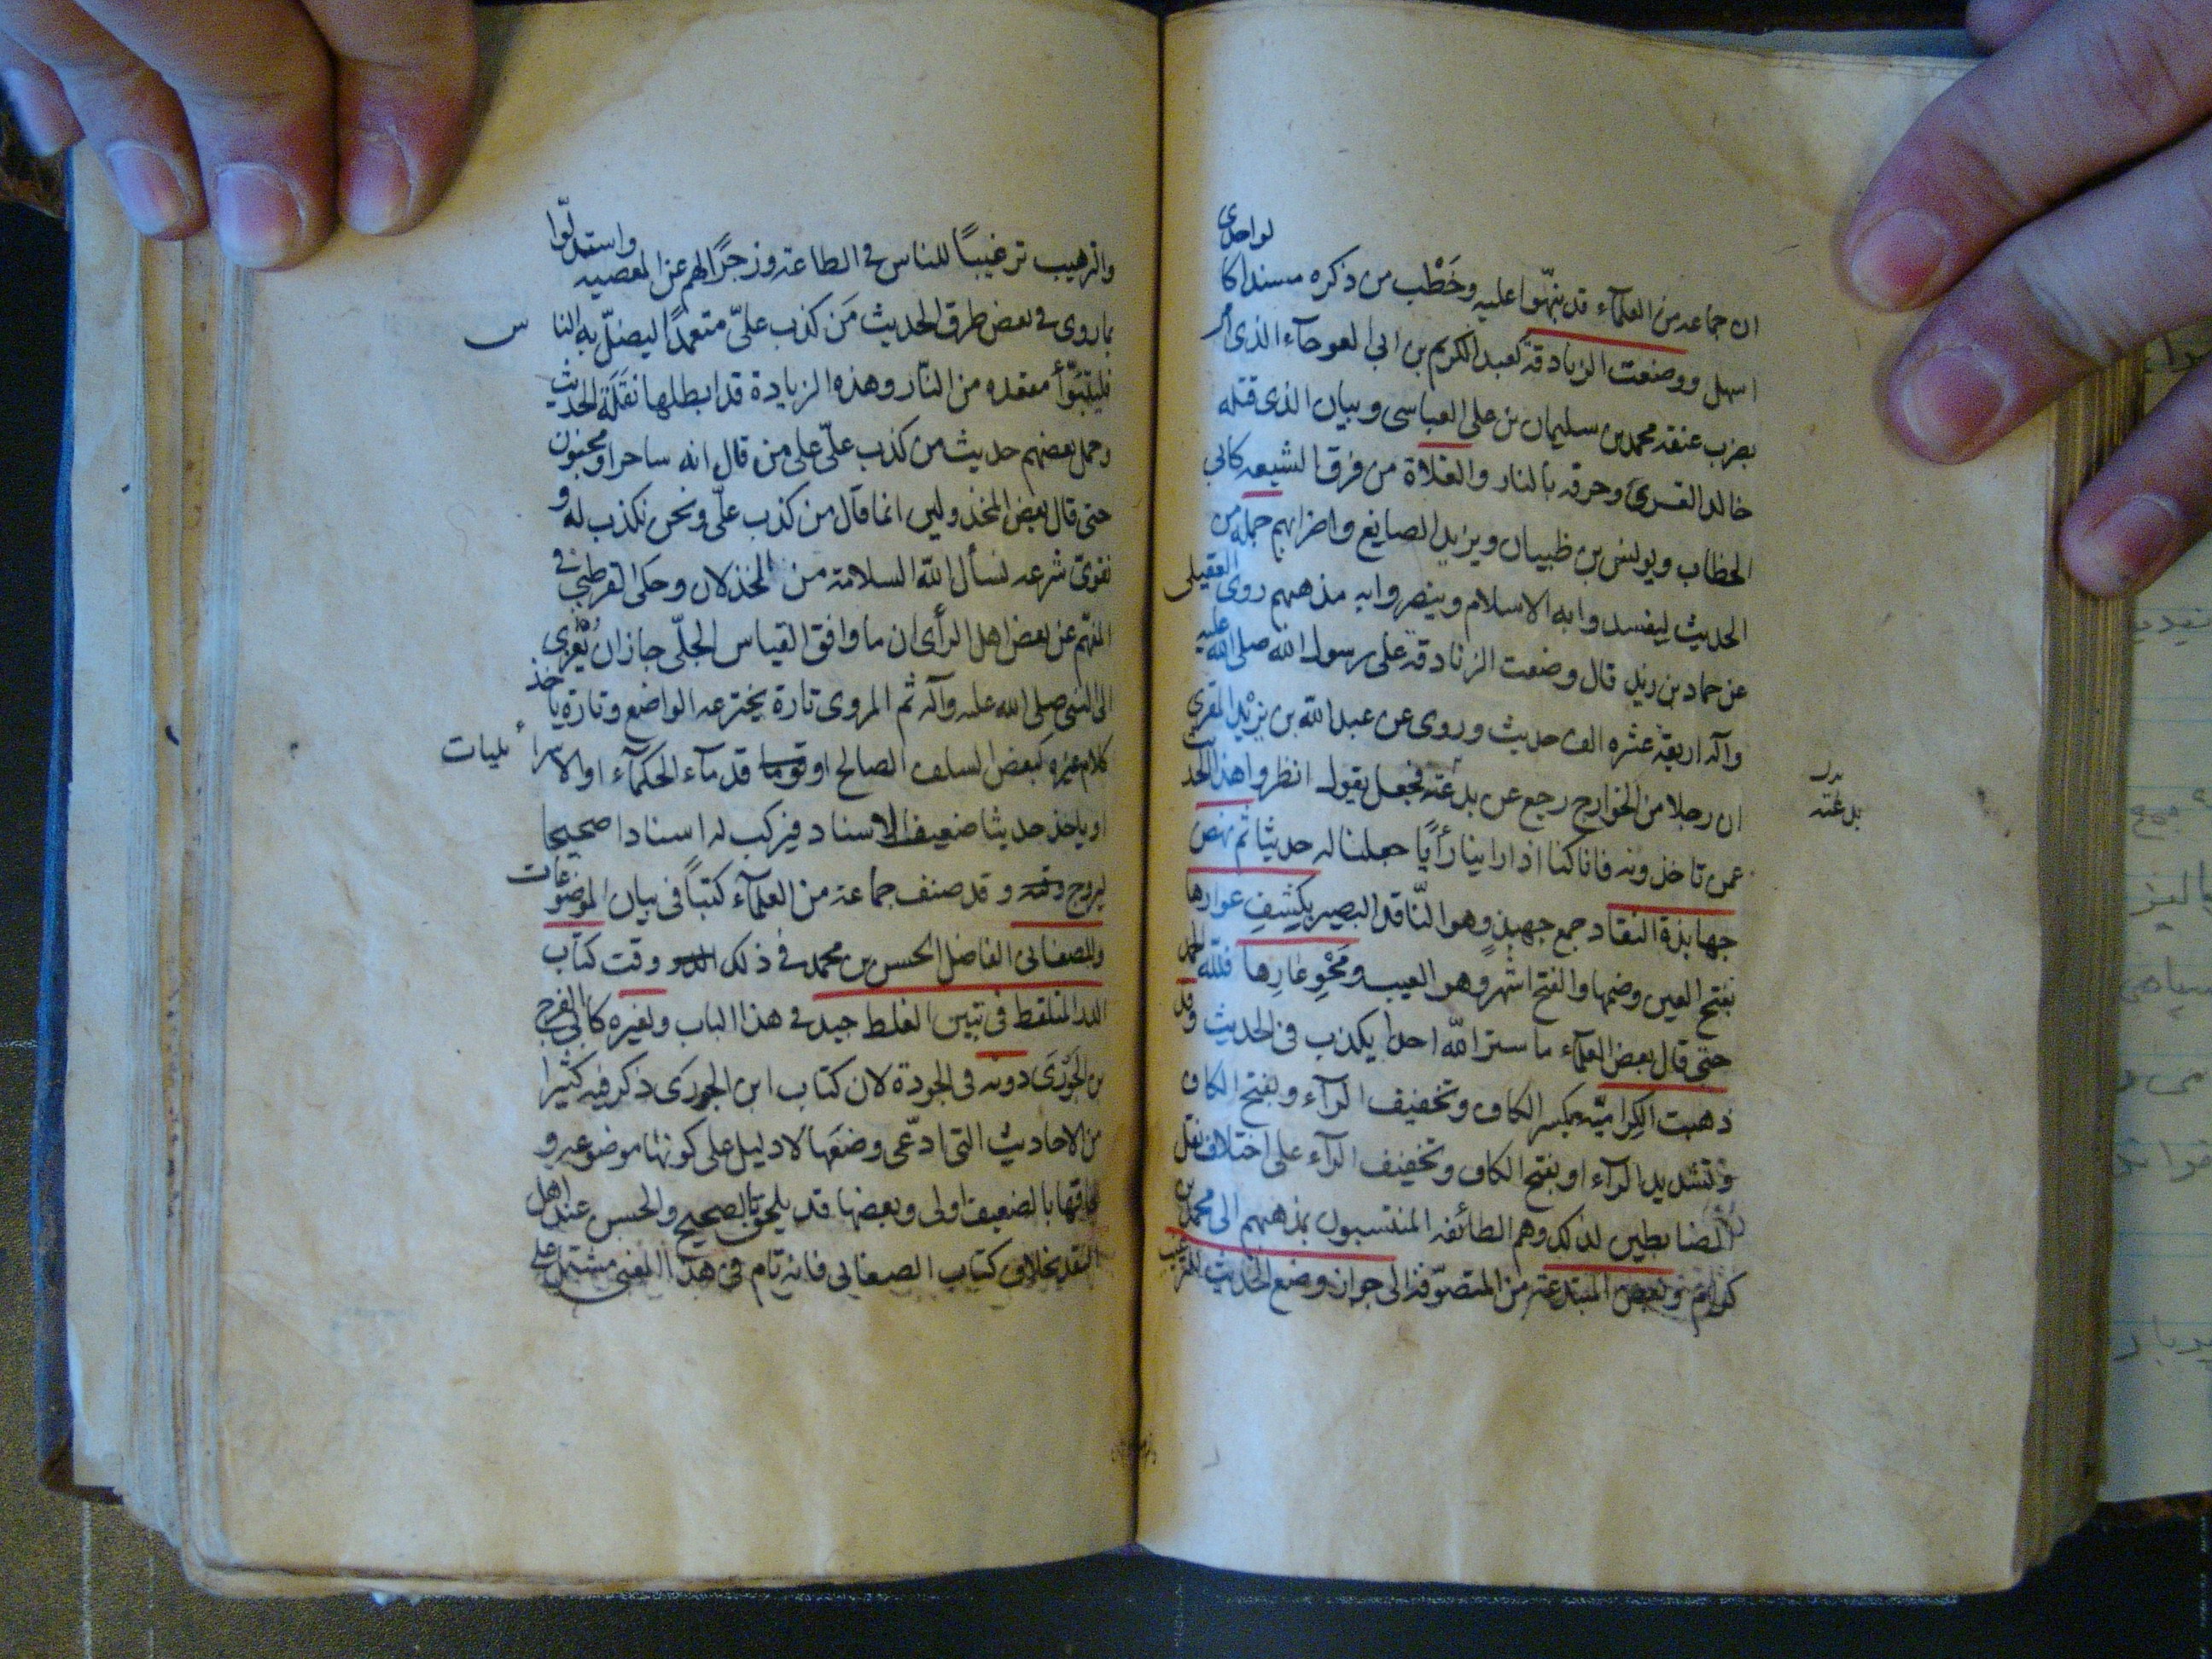 ان جماعه من العلماء قد نبّهوا عليه وخَطْب من ذكره مسندا كالواحدى
اسهل ووضعت الزنادقة كعبد الكريم بن ابى العوجاء الذى امر
بضرب عنقه محمد بن سليمان بن على العباسى وبيان الذى قتله
خالد القسرى وحرقه بالنار والغلاة من فرق الشيعه كابى
الخطاب ويونس بن ظبيان ويزيد الصايغ واضرابهم جمله من
الحديث ليفسدوا به الاسلام وينصروا به مذهبهم روى العقيلى
عن حماد بن زيد قال وضعت الزنادقه على رسول الله صلى الله عليه
وآله اربعة عشره الف حديث وروى عن عبد الله بن يزيد المقرى
ان رجلا من الخوارج رجع عن بدعته فجعل يقول انظروا هذا الحديث
عمن تاخذونه فانا كنا اذا راينا رأيًا جعلنا له حديثا ثم نهض
جهابذة النقاد جمع جهبذ وهو النّاقد البصير بكشف عوارها
بفتح العين وضمها والفتح اشهر وهو العيب ومَحْوِ عارِها فللّه الحمد
حتى قال بعض العلماء ما ستر الله احدا يكذب فى الحديث وقد
ذهبت الكِراميّة بكسر الكاف وتخفيف الرآء وبفتح الكاف
وتشديد الرآء او بفتح الكاف وتخفيف الرآء على اختلاف نقل
الضابطين لذلك وهم الطائفه المنتسبون بمذهبهم الى محمد بن
كرام وبعض المبتدعة من المتصوّفة الى جواز وضع الحديث للترغيب
بدل
بدعته
والترهيب ترغيبًا للناس فى الطاعة وزجرًا لهم عن المعصيه واستدلّوا
بما روى فى بعض طرق الحديث مَن كذب علىّ متعمدًا ليضلّ به الناس
فليتبوّأ مقعده من النّار وهذه الزيادة قد ابطلها نقَلَة الحديث
وحمل بعضهم حديث من كذب علىّ على من قال انه ساحر او مجنون
حتى قال بعض المخذولين انما قال من كذب علىّ ونحن نكذب له و
نقوى شرعه نسأل الله السلامة من الخذلان وحكى القرطبى فى
المفهم عن بعض اهل الرأى ان ما وافق القياس الجلّى جاز ان يُعْزى
الى النبى صلى الله عليه وآله ثم المروى تارة يخترعه الواضع وتارة ياخذ
كلام غيره كبعض السلف الصالح او قدمآء الحكمآء او الاسرائيليات
او ياخذ حديثا ضعيف الاسناد فيركب له اسنادا صحيحا
ليروج وقد صنف جماعة من العلمآء كتباً فى بيان الموضوعات
وللصغانى الفاضل الحسن بن محمد فى ذلك وقت كتاب
الدر الملتقط فى تبيين الغلط جيد فى هذا الباب ولغيره كابى الفرج
بن الجَوْزى دونه فى الجودة لان كتاب ابن الجوزى ذكر فيه كثيرا
من الاحاديث التى ادّعى وضعَها لا دليل على كونها موضوعه و
الحاقها بالضعيف اولى وبعضها قد يلحق بالصحيح والحسن عند اهل
النقد بخلاف كتاب الصغانى فانه تام فى هذا المعنى مشتمل على